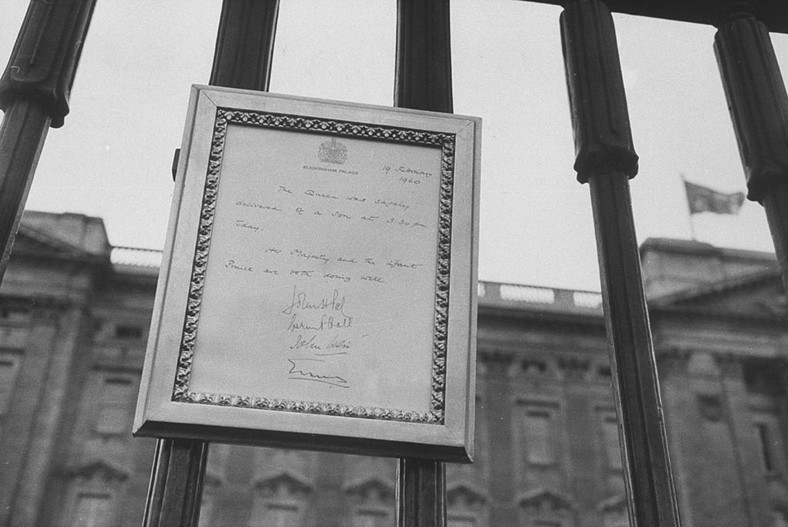 BUCKINGHAM PALACE
19 February
1960
The Queen was safely
delivered of a son at 3.30 pm
today.
Her Majesty and the infant
Prince are both doing well
John H Peel
John Weir
Evans